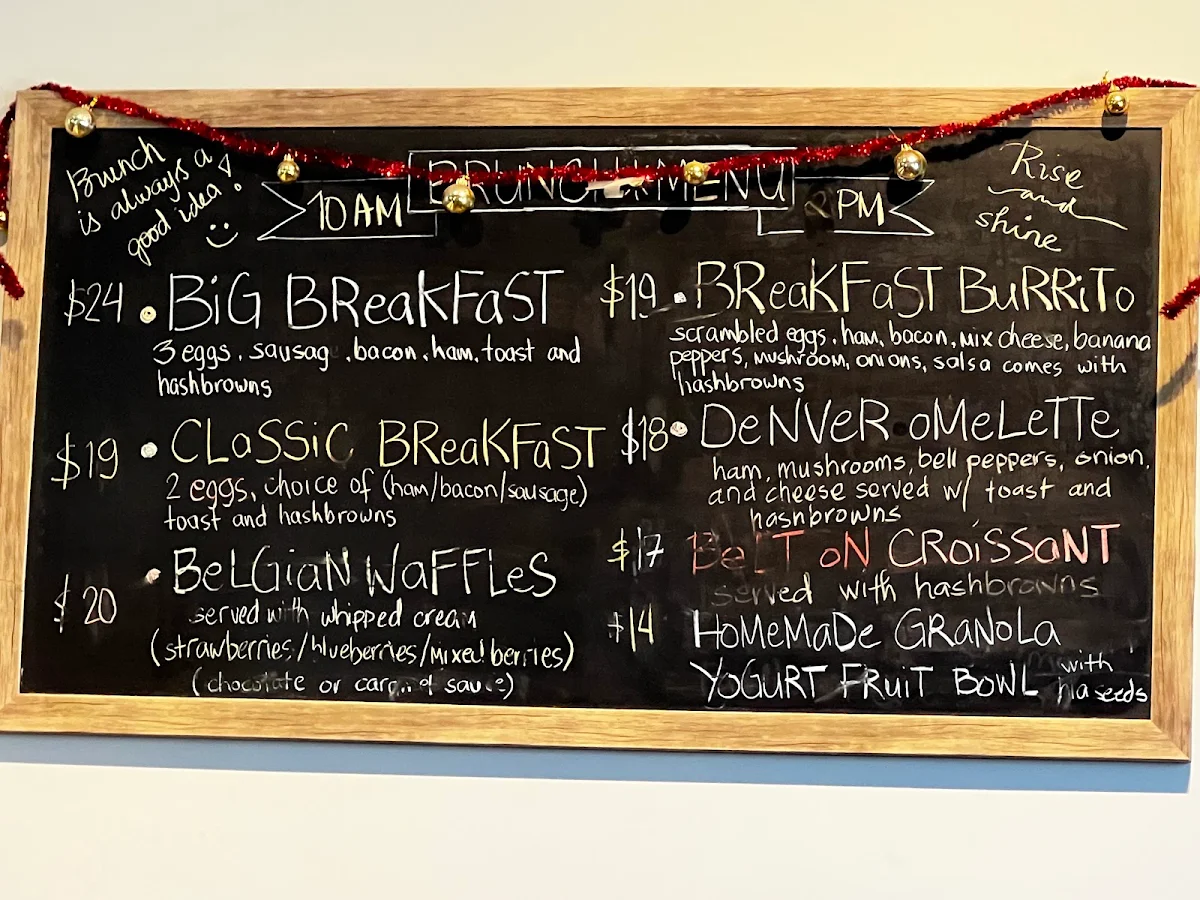 Brunch
is always a
good idea!
BRUNCH MENU
10 AM
2 PM
Rise
and
shine
$24 • BiG BReaKFaST
3 eggs, sausag , bacon, ham, toast and
hashbrowns
$19 • CLaSSiC BReaKFaST
2 eggs, choice of (ham/bacon/sausage)
toast and hashbrowns
$20 • BeLGiaN WaFFLeS
served with whipped cream
(strawberries/blueberries/mixed berries)
(chocolate or caramel sauce)
$19 • BReaKFaST BuRRiTo
scrambled eggs, ham, bacon, mix cheese, banana
peppers, mushroom, onions, salsa comes with
hashbrowns
$18 • DeNVeR oMeLeTTe
ham, mushrooms, bell peppers, onion,
and cheese served w/ toast and
hashbrowns
$17 BeLT oN CRoiSSaNT
served with hashbrowns
$14 HoMeMaDe GRaNoLa
YoGURT FRuiT BoWL with
hia seeds